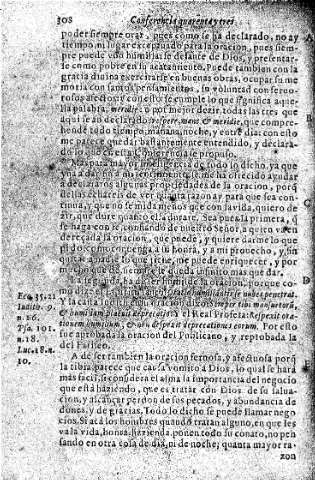 308 Conferencia quarenta y tres
poder siempre orar, pues como se ha declarado, no ay
tiempo ni lugar exceptuado para la oracion, pues siem-
pre puede con humillarse delante de Dios, y presentar-
se como pobre en su acatamiento. Puede tambien con la
gracia diuina exercitarse en buenas obras, ocupar su me
moria con santos pensamientos, su voluntad con feruo-
rosos afectos: y con esto se cumple lo que significa aque-
lla palabra, o por mejor dezir, todas las tres que
aqui se an declarado: vespere, mane & meridie, que compre-
hende todo tiempo, mañana, noche, y entre dia: con esto
me parece quedar bastantemente entendido, y declara-
do lo de esta Conferencia se propuso.
Mas para mayor inteligencia de todo lo dicho, ya que
se me ha ofrecido ayudar
a declararos algunas propiedades de la oracion, porq
dellas echareis de ver quanta razon ay para que sea con-
tinua, y que no se mida menos que con la vida, quiero de
zir, que dure quanto ella durare. Sea pues la primera, q
se haga con fe, confiando de nuestro Señor, a quien va en
dereçada la oracion, que puede, y quiere darme lo que
pido como conuenga a su honra, y a mi prouecho, y sin
quitar nada de lo que tiene, me puede enriquecer, y por
mucho que de, siempre le queda infinito mas que dar.
ha de ser humilde la oracion, porque como
Ecc. 35.21
Iudith. 9. Y la casta Iudith en su oracion dixo:
n. 16. & humilium placuit deprecatio: y el Real Profeta: Respexit ora
Psa. 101. tionem humilium, & non spreuit deprecationes eorum. Por esto
n. 18. fue aprobada la oracion del Publicano, y reprobada la
Luc. 18. n. del Fariseo.
10. A de ser tambien la oracion feruorosa, y afectuosa porq
la tibia parece que causa vomito a Dios, lo qual se hará
mas facil, si considera el alma la importancia del negocio
que está haziendo, que es tratar con Dios de su salua-
cion, y alcançar perdon de sus pecados, y abundancia de
dones, y de gracias. Todo lo dicho se puede llamar nego
cios. Si acá los hombres quando tratan alguno, en que les
va la vida, honra, hazienda, ponen todo su conato, no pen
sando en otra cosa de dia, ni de noche; quanta mayor ra-
zon